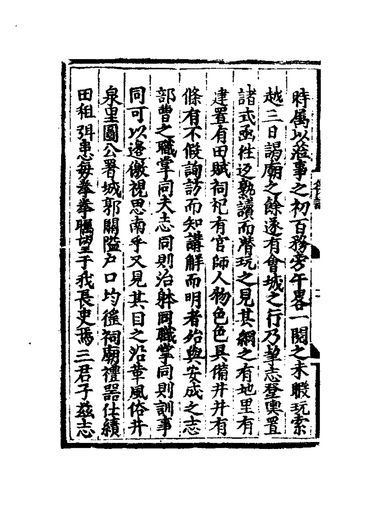 時屬以蒞事之初百務旁午畧一閱之未暇玩索
越三日謁廟之餘遂有會城之行乃挈志登輿置
諸式函徃返熟讀而潛玩之見其綱之有地里有
建置有田賦祠祀有官師人物色色具備井井有
條有不假詢訪而知講解而明者殆與安成之志
部曹之職掌同夫志同則治躰同職掌同則訓事
同可以邊徼視思南乎又見其目之沿革風俗井
泉里圖公署城郭關隘户口均徭祠廟禮器仕績
田租弭患每拳拳矚望于我長吏焉三君子兹志